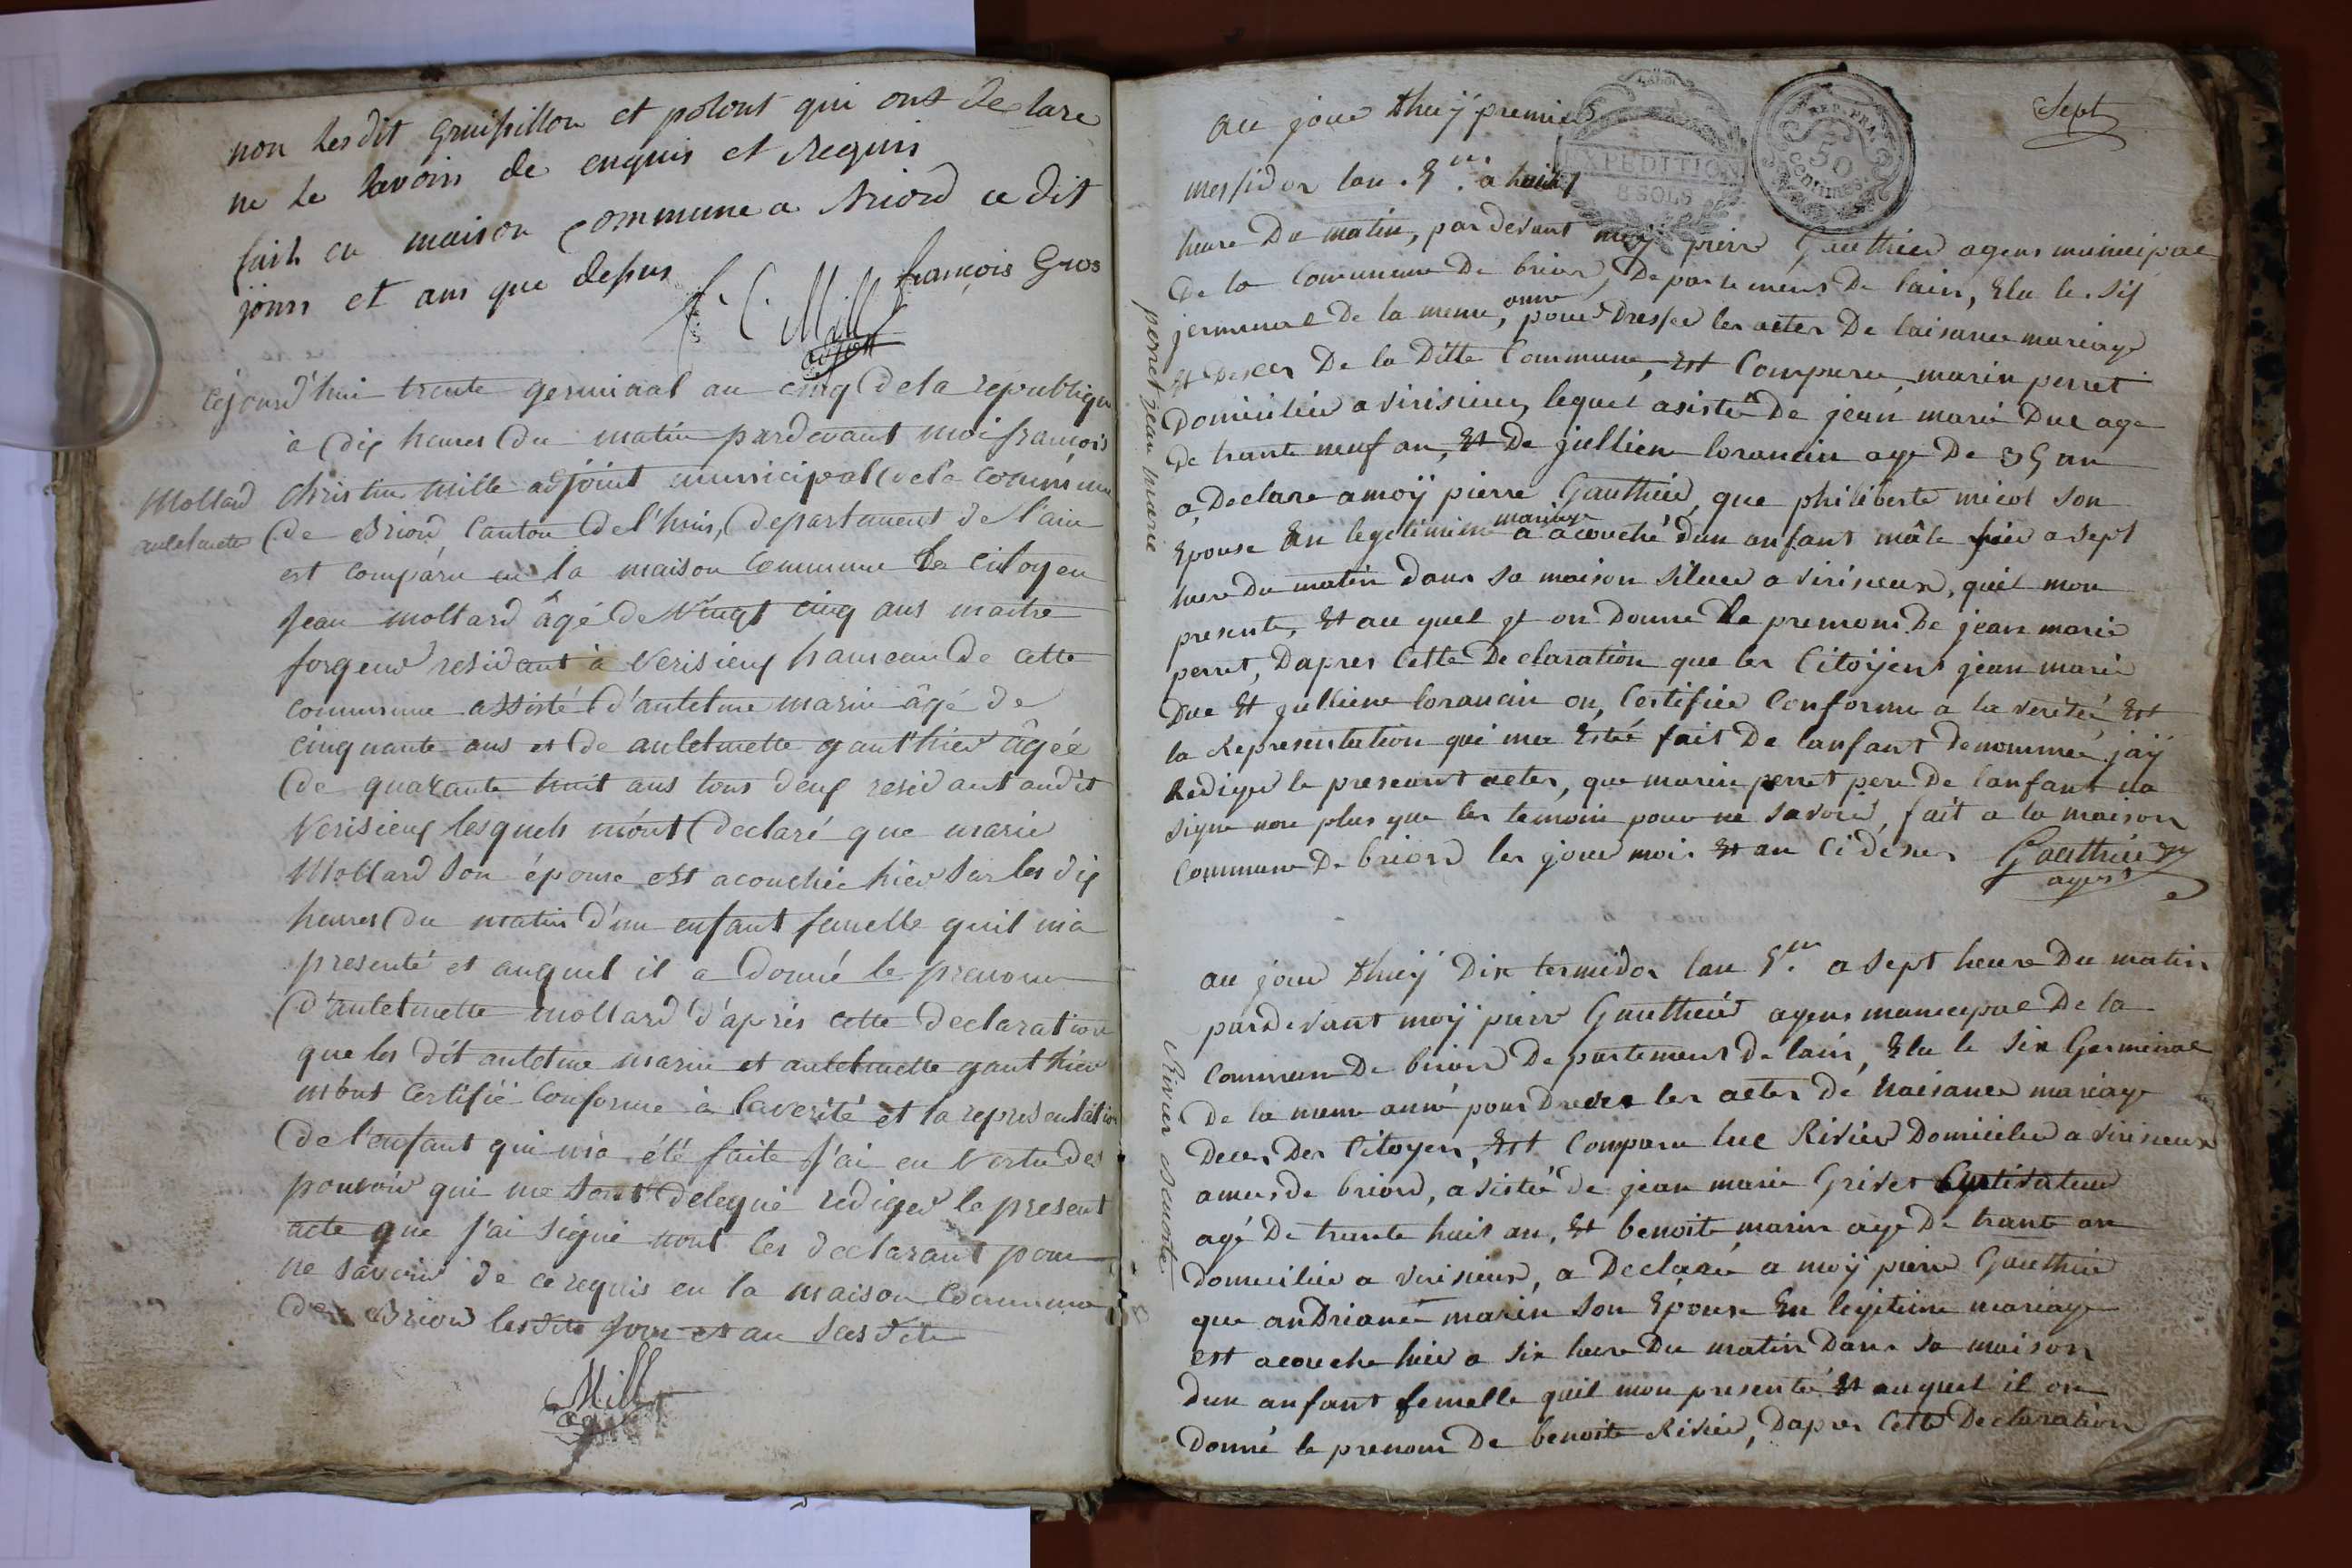 non lesdit Gruissillon et polont qui ont declare
ne le savoirs de enquis et Requis
fait en maison commune a Briord ce dit
jours et ans que dessus
f. C. Mille françois Gros
adjoint
Cejourd'hui trente germinal an cinq de la republique
à dix heures du matin pardevant moi françois
Christin Mille adjoint municipal de la commune
Mollard
antelmette
de Briord Canton de l'huis, departement de l'ain
est comparu en la maison commune le Citoyen
Jean mollard âgé de Vingt cinq ans maitre
forgeur residant à Verisieux hameau de cette
commune assisté d'antelme marin âgé de
cinquante ans et de antelmette gauthier âgée
de quarante huit ans tous deux residant audit
Verisieux lesquels m'ont declaré que marie
Mollard son épouse est acouchée hier sur les dix
heures du matin d'un enfant femelle quil m'a
presenté et auquel il a donné le prenom
d'antelmette mollard d'après cette declaration
que les dit antelme marin et antelmette gauthier
m'ont certifié conforme à la verité et la representation
de l'enfant qui m'a été faite j'ai en vertu des
pouvoir qui me sont delegué rediger le present
acte que j'ai signé nont les declarant pour
ne savoir de ce requis en la maison Commune
de Briord lesdits jour et an susdits
Mille
Sept
EXPEDITION
8 SOLS
REP. FRA.
50
CENTIMES
au jour dhuÿ premier
messidor lan 5.me a huit
heure Du matin, par devant moÿ pierre Gauthier agens municipal
De la Commune De briord, Departemens De lain, Elu le six
jerminal De la meme, anne pour Dresser les actes De laisance mariage
Et Deces De la Ditte Commune, Est Comparu marin perret
Domicilier a virisieux, lequel asisteé De jean marie Duc age
De trante neuf an, Et De jullien loranain age De 35 an
a Declare a moÿ pierre Gauthier, que philiberte micol son
Epouse En legetimime mariage a acouché dun anfant mâle hier a sept
heure Du matin dans sa maison situee a virisieux, quil mon
presente, Et au quel jl on Donne le premoms De jean marie
perret, Dapres Cette Declaration que les Citoÿens jean marie
Duc Et jullienn loranain on, Certifier Conforme a la vereteé Et
la Representetion qui mea Esteé fait De lanfant denommeé jaÿ
Rediger le preseant actes, que marin perret pere De lanfant na
signe non plus que les temoin pour ne savoir, fait a la maison
Commune De briord les jour mois Et an Ci desus
Gauthier
agens
perret jean marie
au jour dhuÿ Dix termidor lan 5.me a sept heure Du matin
pardevant moÿ pierre Gauthier agens manicipal De la
Commune De briord Departemens De lain, Elu le six Germinal
De la meme anné pour Dreser les actes dé Naisance mariage
Deces Des Citoyen, Est Comparu luc Rivier Domicilier a virisieux
ameus de briord, a sisteé de jean marie Griset Cultivateur
agé De trante huit an, Et benoite marin age De trante an
domicilier a virisieux, a Declareé a moÿ pierre Gauthier
que andrianné marin son Epouse En legitime mariage
est acouche hier a six heure Du matin Dans sa maison
dun anfant femelle quil mon presenté Et auquel il on
Donné le prenom De benoite Rivier, Dapres Cette Declaration
Rivier Benoite